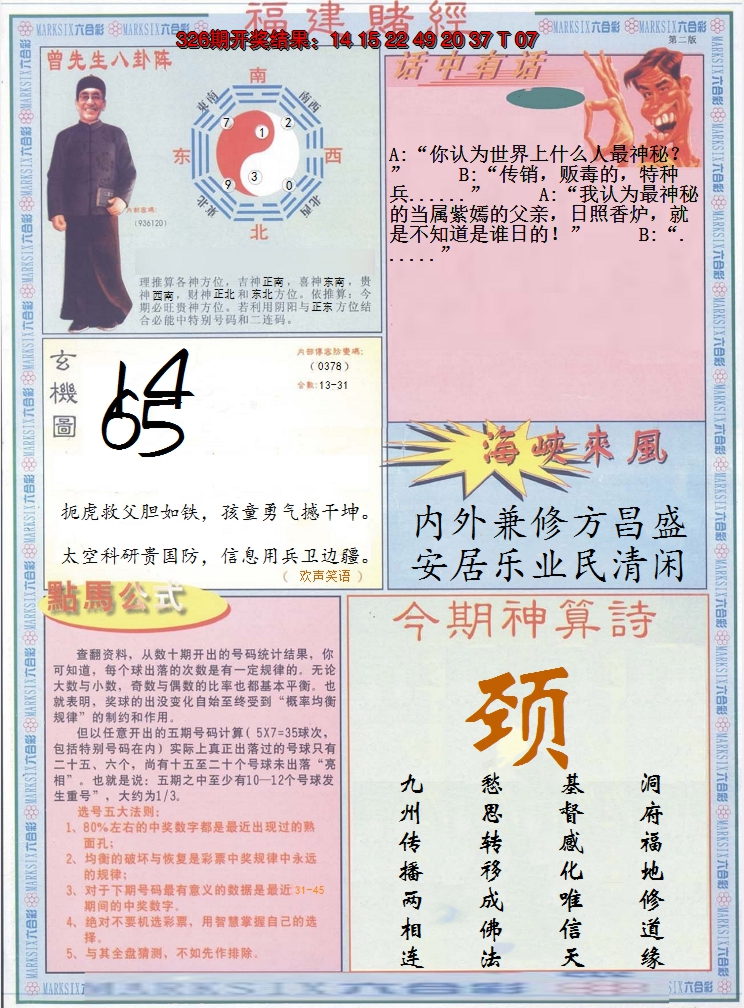 福建賭經
326期开奖结果：14 15 22 49 20 37 T 07
第二版
MARKSIX六合彩
曾先生八卦阵
南
东南
南西
7
1
2
东
西
9
3
0
東北
北西
北
內部密碼:
(936120)
理推算各神方位，吉神正南，喜神东南，贵
神西南，财神正北和东北方位。依推算：今
期必旺贵神方位。若利用阴阳与正东方位结
合必能中特别号码和二连码。
话中有话
A:“你认为世界上什么人最神秘?
” B:“传销，贩毒的，特种
兵......” A:“我认为最神秘
的当属紫嫣的父亲，日照香炉，就
是不知道是谁日的！” B:“.
.....”
玄機圖
14
65
內部傳密防密碼:
(0378)
合数:13-31
扼虎救父胆如铁，孩童勇气撼干坤。
太空科研贵国防，信息用兵卫边疆。
（ 欢声笑语 ）
海峽來風
内外兼修方昌盛
安居乐业民清闲
點馬公式
查翻资料，从数十期开出的号码统计结果，你
可知道，每个球出落的次数是有一定规律的。无论
大数与小数，奇数与偶数的比率也都基本平衡。也
就表明，奖球的出没变化自始至终受到“概率均衡
规律”的制约和作用。
但以任意开出的五期号码计算( 5X7=35球次，
包括特别号码在内) 实际上真正出落过的号球只有
二十五、六个，尚有十五至二十个号球未出落“亮
相”。也就是说：五期之中至少有10—12个号球发
生重号”，大约为1/3。
选号五大法则:
1、80%左右的中奖数字都是最近出现过的熟
面孔；
2、均衡的破坏与恢复是彩票中奖规律中永远
的规律；
3、对于下期号码最有意义的数据是最近31-45
期间的中奖数字。
4、绝对不要机选彩票，用智慧掌握自己的选
择。
5、与其全盘猜测，不如先作排除。
今期神算詩
颈
洞府福地修道缘
基督感化唯信天
愁思转移成佛法
九州传播两相连